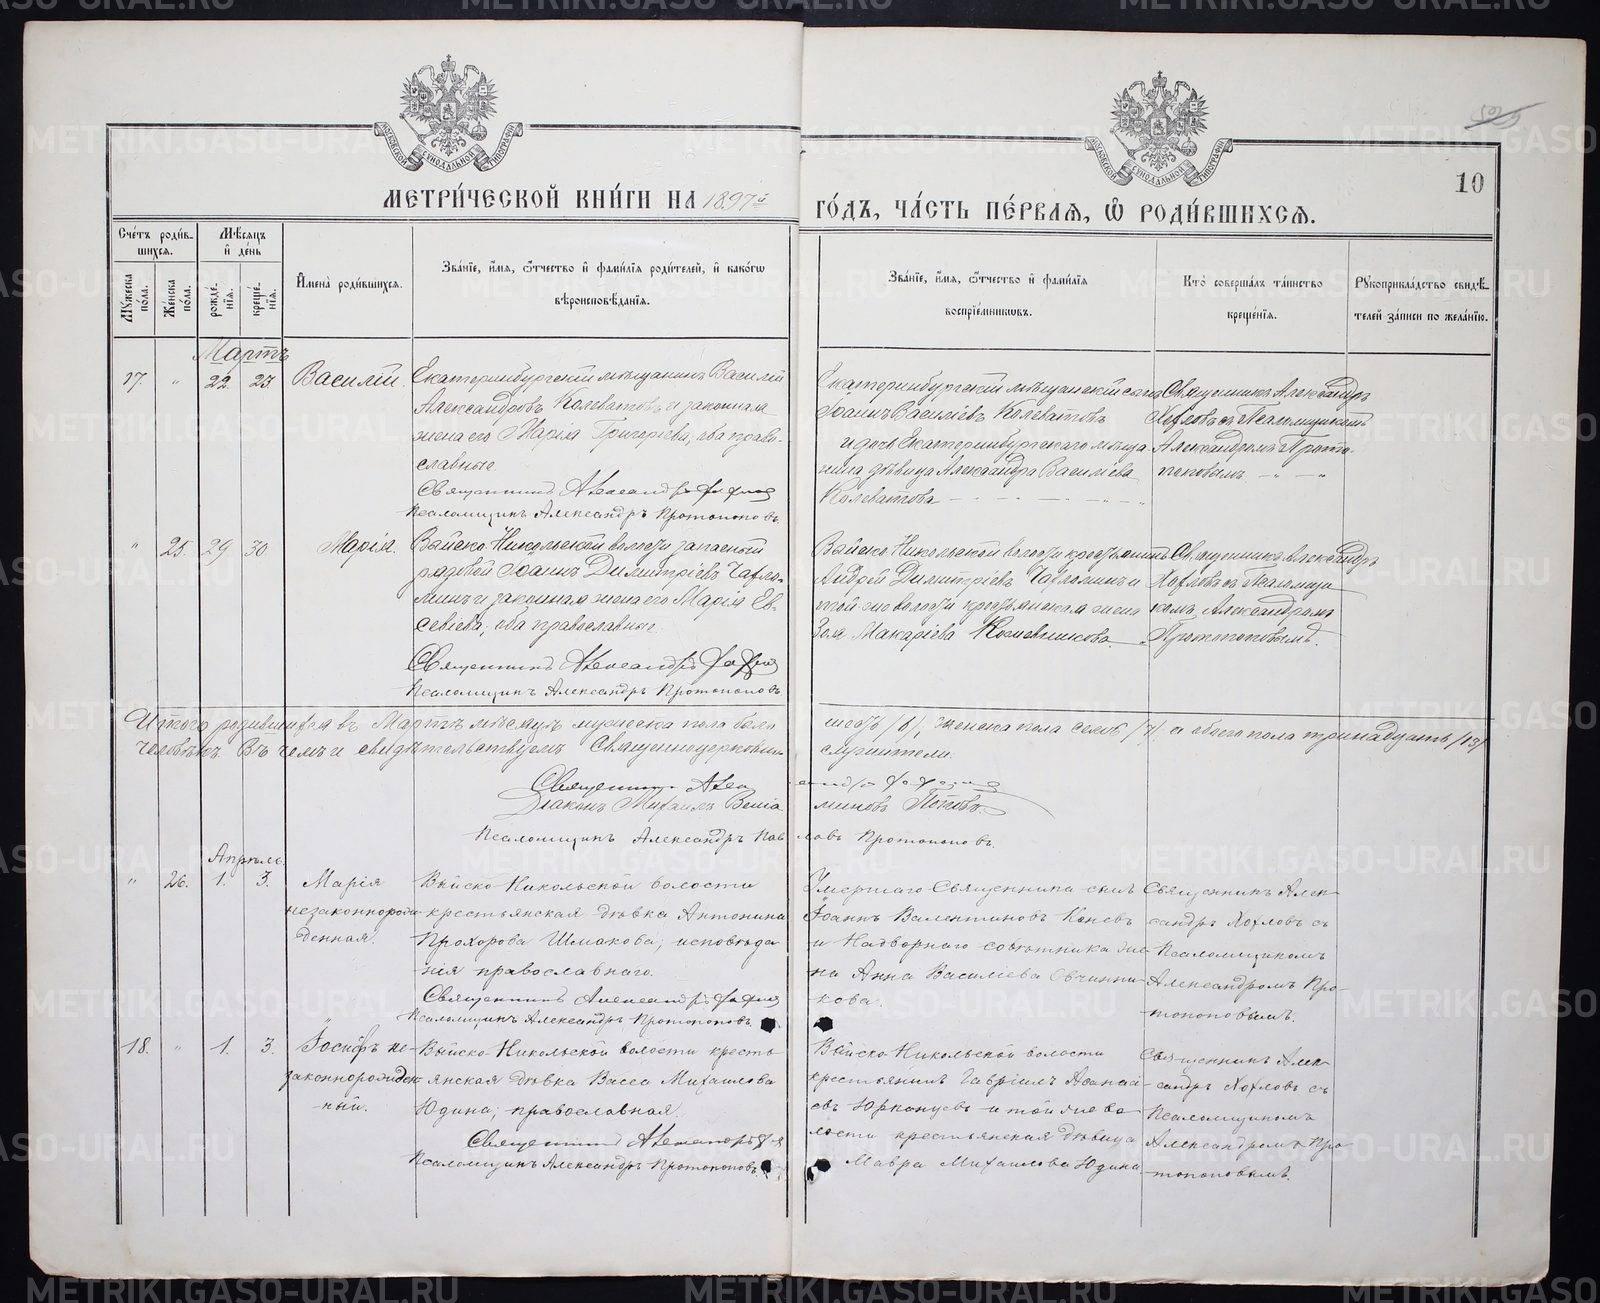 МЕТРИ́ЧЕСКОЙ КНИ́ГИ НА 1897й
ГО́ДЪ, ЧА́СТЬ ПЕ́РВАЯ, Ѿ РОДИ́ВШИХСЯ.
10
Счетъ роди́в-
шихся.
Мѣсяцъ
и҆ де́нь
Мꙋжеска по́ла.
Же́нска по́ла.
рожде́-
нїя.
креще́-
нїя.
И҆мена̀ роди́вшихся.
Зва́нїе, и҆́мя, ѻ҆́тчество и҆ фами́лїя роди́телей, и҆ како́гѡ
вѣроисповѣ́данїя.
Зва́нїе, и҆́мя, ѻ҆́тчество и҆ фами́лїя
воспрїе́мникѡвъ.
Кто̀ соверша́лъ та́инство
креще́нїя.
Рꙋкоприкла́дство свидѣ́-
телей за́писи по жела́нїю.
Мартъ
17. " 22. 23 Василій.
Екатеринбургскій мѣщанинъ Василій
Александровъ Колеватовъ и законная
жена его Марія Григоріева, оба право-
славные
Священникъ Александръ Хохловъ
Псаломщикъ Александръ Протопоповъ.
Екатеринбургскій мѣщанскій сынъ
Іоаннъ Василіевъ Колеватовъ
и дочь Екатеринбургскаго мѣща-
нина дѣвица Александра Василіева
Колеватова
Священникъ Александръ
Хохловъ съ Псаломщикомъ
Александромъ Прото-
поповымъ
" 25. 29 30 Марія.
Выйско-Никольской волости запасный
рядовой Іоаннъ Димитріевъ
и законная жена его Марія Ев-
севіева, оба православные.
Священникъ Александръ Хохловъ
Псаломщикъ Александръ Протопоповъ
Выйско-Никольской волости крестьянинъ
Андрей Димитріевъ и
той-же волости крестьянская жена
Зоя Макаріева Кожевникова.
Священникъ Александръ
Хохловъ съ Псаломщи-
комъ Александромъ
Протопоповымъ.
Итого родившихся въ Мартѣ мѣсяцѣ мужеска пола было шесть /6/, женска пола семь /7/ а обоего пола тринадцать /13/
человѣкъ. Въ чемъ и свидѣтельствуемъ Священноцерковно-служители.
Священникъ Александръ Хохловъ
Діаконъ Михаилъ Веніаминовъ Поповъ.
Псаломщикъ Александръ Павловъ Протопоповъ.
Апрѣль.
" 26. 1. 3. Марія
незаконнорож-
денная.
Выйско-Никольской волости
крестьянская дѣвка Антонина
Прохорова Шмакова, исповѣда-
нія православнаго.
Священникъ Александръ Хохловъ
Псаломщикъ Александръ Протопоповъ.
Умершаго Священника сынъ
Іоаннъ Валентиновъ Коневъ
и Надворнаго совѣтника же-
на Анна Василіева Овчинни-
кова.
Священникъ Алек-
сандръ Хохловъ съ
Псаломщикомъ
Александромъ Про-
топоповымъ.
18. " 1. 3. Іосифъ не-
законнорожден-
ный.
Выйско-Никольской волости кресть-
янская дѣвка Васса Михаилова
Юдина; православная.
Священникъ Александръ Хохловъ
Псаломщикъ Александръ Протопоповъ.
Выйско-Никольской волости
крестьянинъ Гавріилъ Аѳанасі-
евъ Юрконцевъ и той же во-
лости крестьянская дѣвица
Мавра Михаилова Юдина
Священникъ Алек-
сандръ Хохловъ съ
Псаломщикомъ
Александромъ Про-
топоповымъ.
METRIKI.GASO-URAL.RU